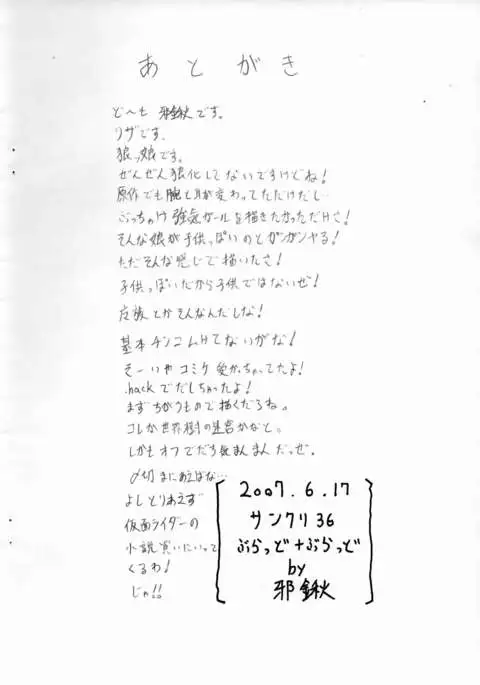 あとがき
ど〜も 邪鍬です。
リザです。
狼っ娘です。
ぜんぜん狼化してないですけどね!
原作でも腕と耳が変わってただけだし…
ぶっちゃけ強気ガールを描きたかっただけさ!
そんな娘が子供っぽいのとガンガンヤる!
ただそんな感じで描いたさ!
子供っぽいだから子供ではないぜ!
皮族とかそんなんだしな!
基本チンコムけてないがな!
そーいやコミケ受かっちゃってたよ!
.hackでだしちゃったよ!
まずちがうもので描くだろね。
コレか世界樹の迷宮かなと。
しかもオフでだち
まんまんだっぜ。
〆切まにあえばな…
よしとりあえず
仮面ライダーの
小説買いにいって
くるわ!
じゃ!!
2007.6.17
サンクリ36
ぶらっど+ぶらっど
by
邪鍬